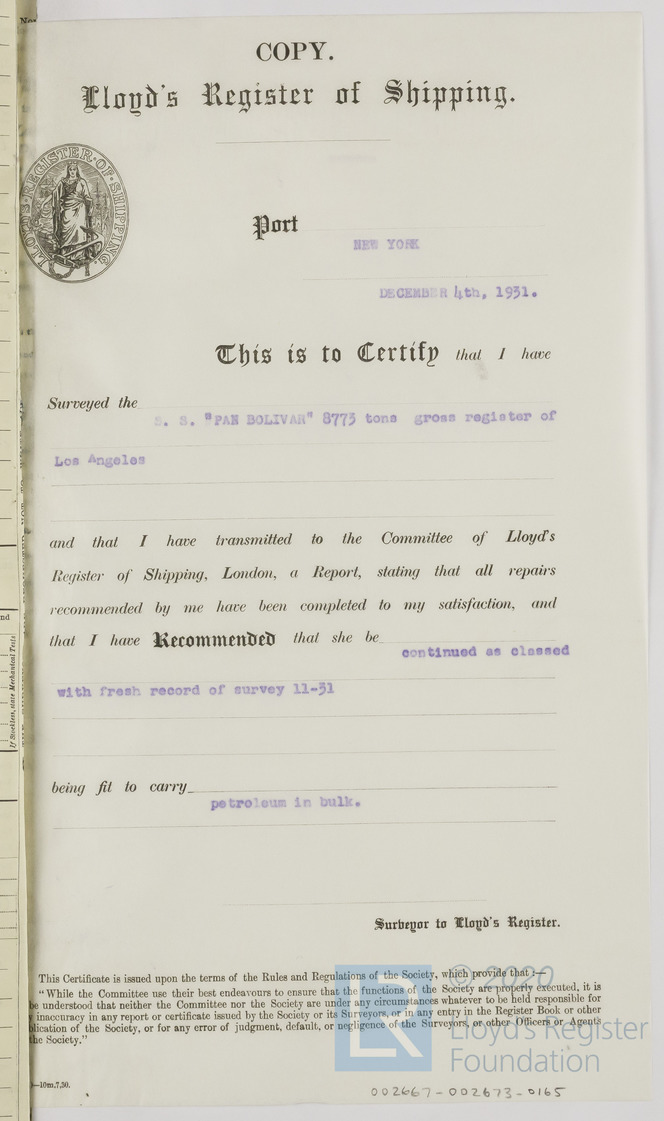 COPY.
Lloyd's Register of Shipping.
LLOYD'S REGISTER OF SHIPPING
Port
NEW YORK
DECEMBER 4th, 1931.
This is to Certify that I have
Surveyed the
S. S. "PAN BOLIVAR" 8773 tons gross register of
Los Angeles
and that I have transmitted to the Committee of Lloyd's
Register of Shipping, London, a Report, stating that all repairs
recommended by me have been completed to my satisfaction, and
that I have Recommended that she be
continued as classed
with fresh record of survey 11-31
being fit to carry
petroleum in bulk.
Surveyor to Lloyd's Register.
This Certificate is issued upon the terms of the Rules and Regulations of the Society, which provide that:—
"While the Committee use their best endeavours to ensure that the functions of the Society are properly executed, it is
be understood that neither the Committee nor the Society are under any circumstances whatever to be held responsible for
inaccuracy in any report or certificate issued by the Society or its Surveyors, or in any entry in the Register Book or other
lication of the Society, or for any error of judgment, default, or negligence of the Surveyors, or other Officers or Agents
the Society."
—10m,7,30.
© 2020
Lloyd's Register
Foundation
002667-002673-0165
If Stockless, state Mechanical Tests